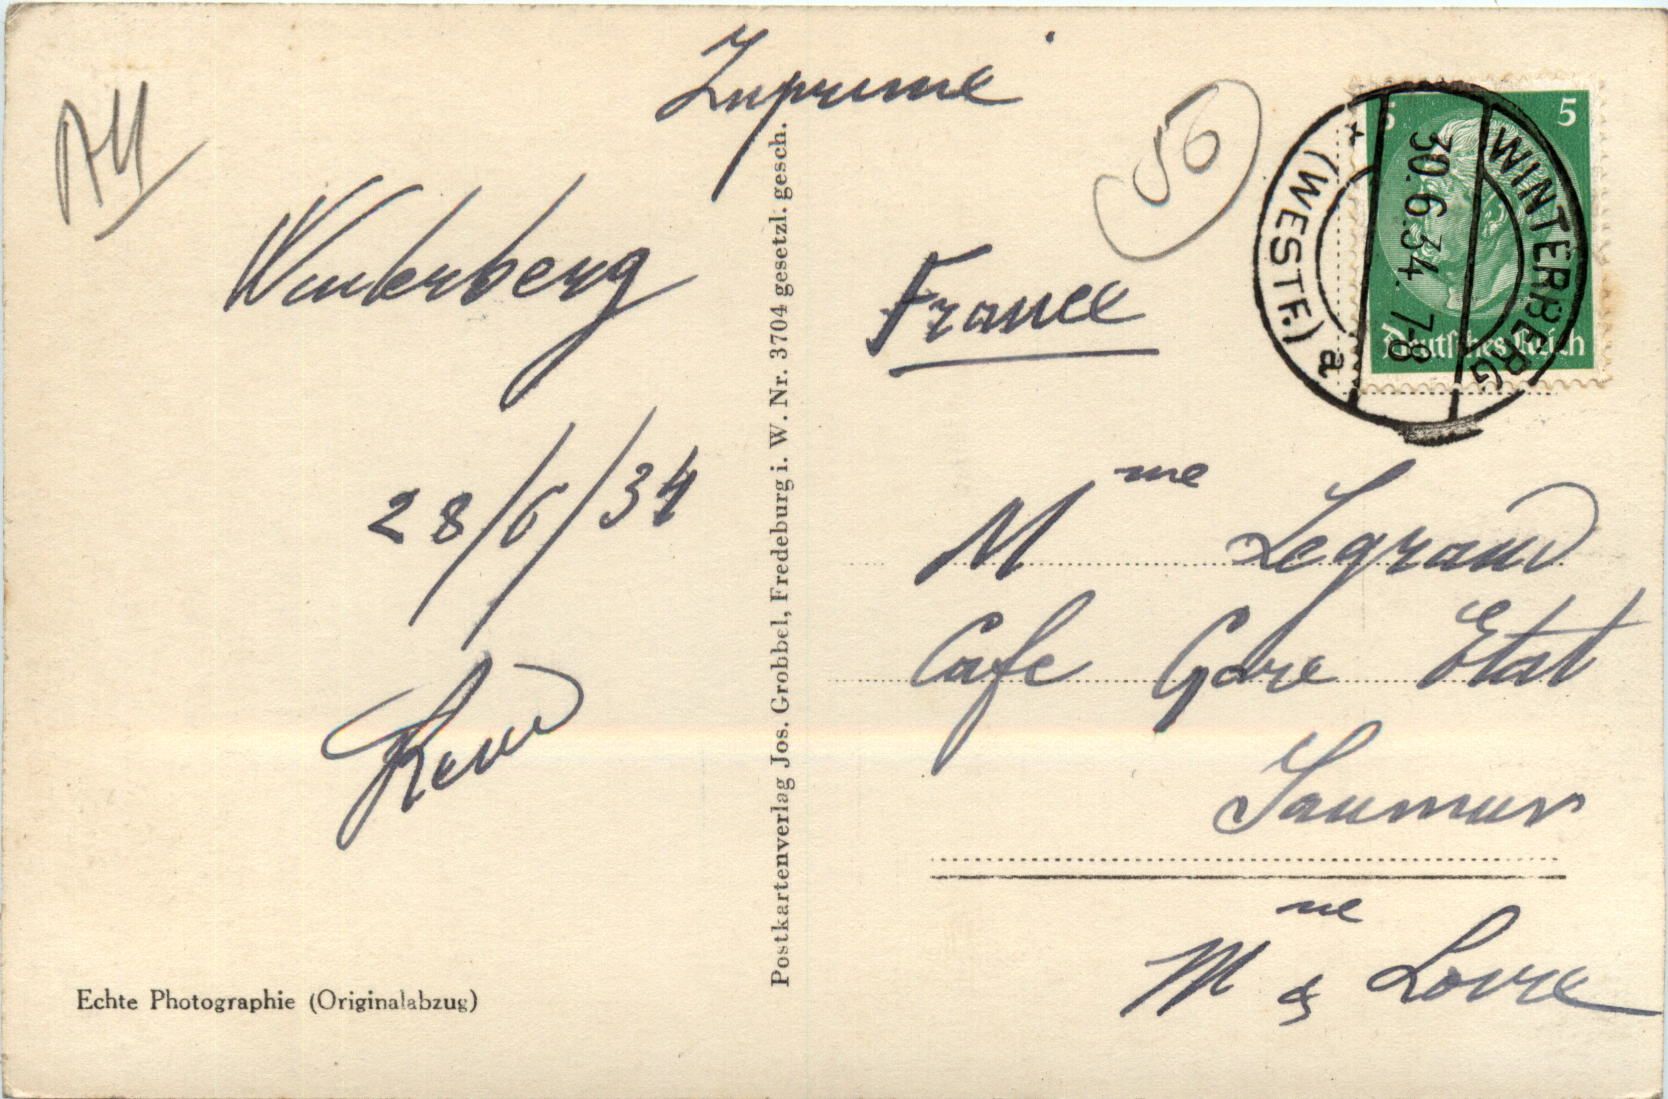 Imprimé
A4
56
Winterberg
France
28/6/34
René
Mme Legrand
Cafe Gare Etat
Saumur
Mne & Loire
5 5
Deutsches Reich
WINTERBERG
(WESTF.) a
30.6.34. 7-8
Postkartenverlag Jos. Grobbel, Fredeburg i. W. Nr. 3704 gesetzl. gesch.
Echte Photographie (Originalabzug)